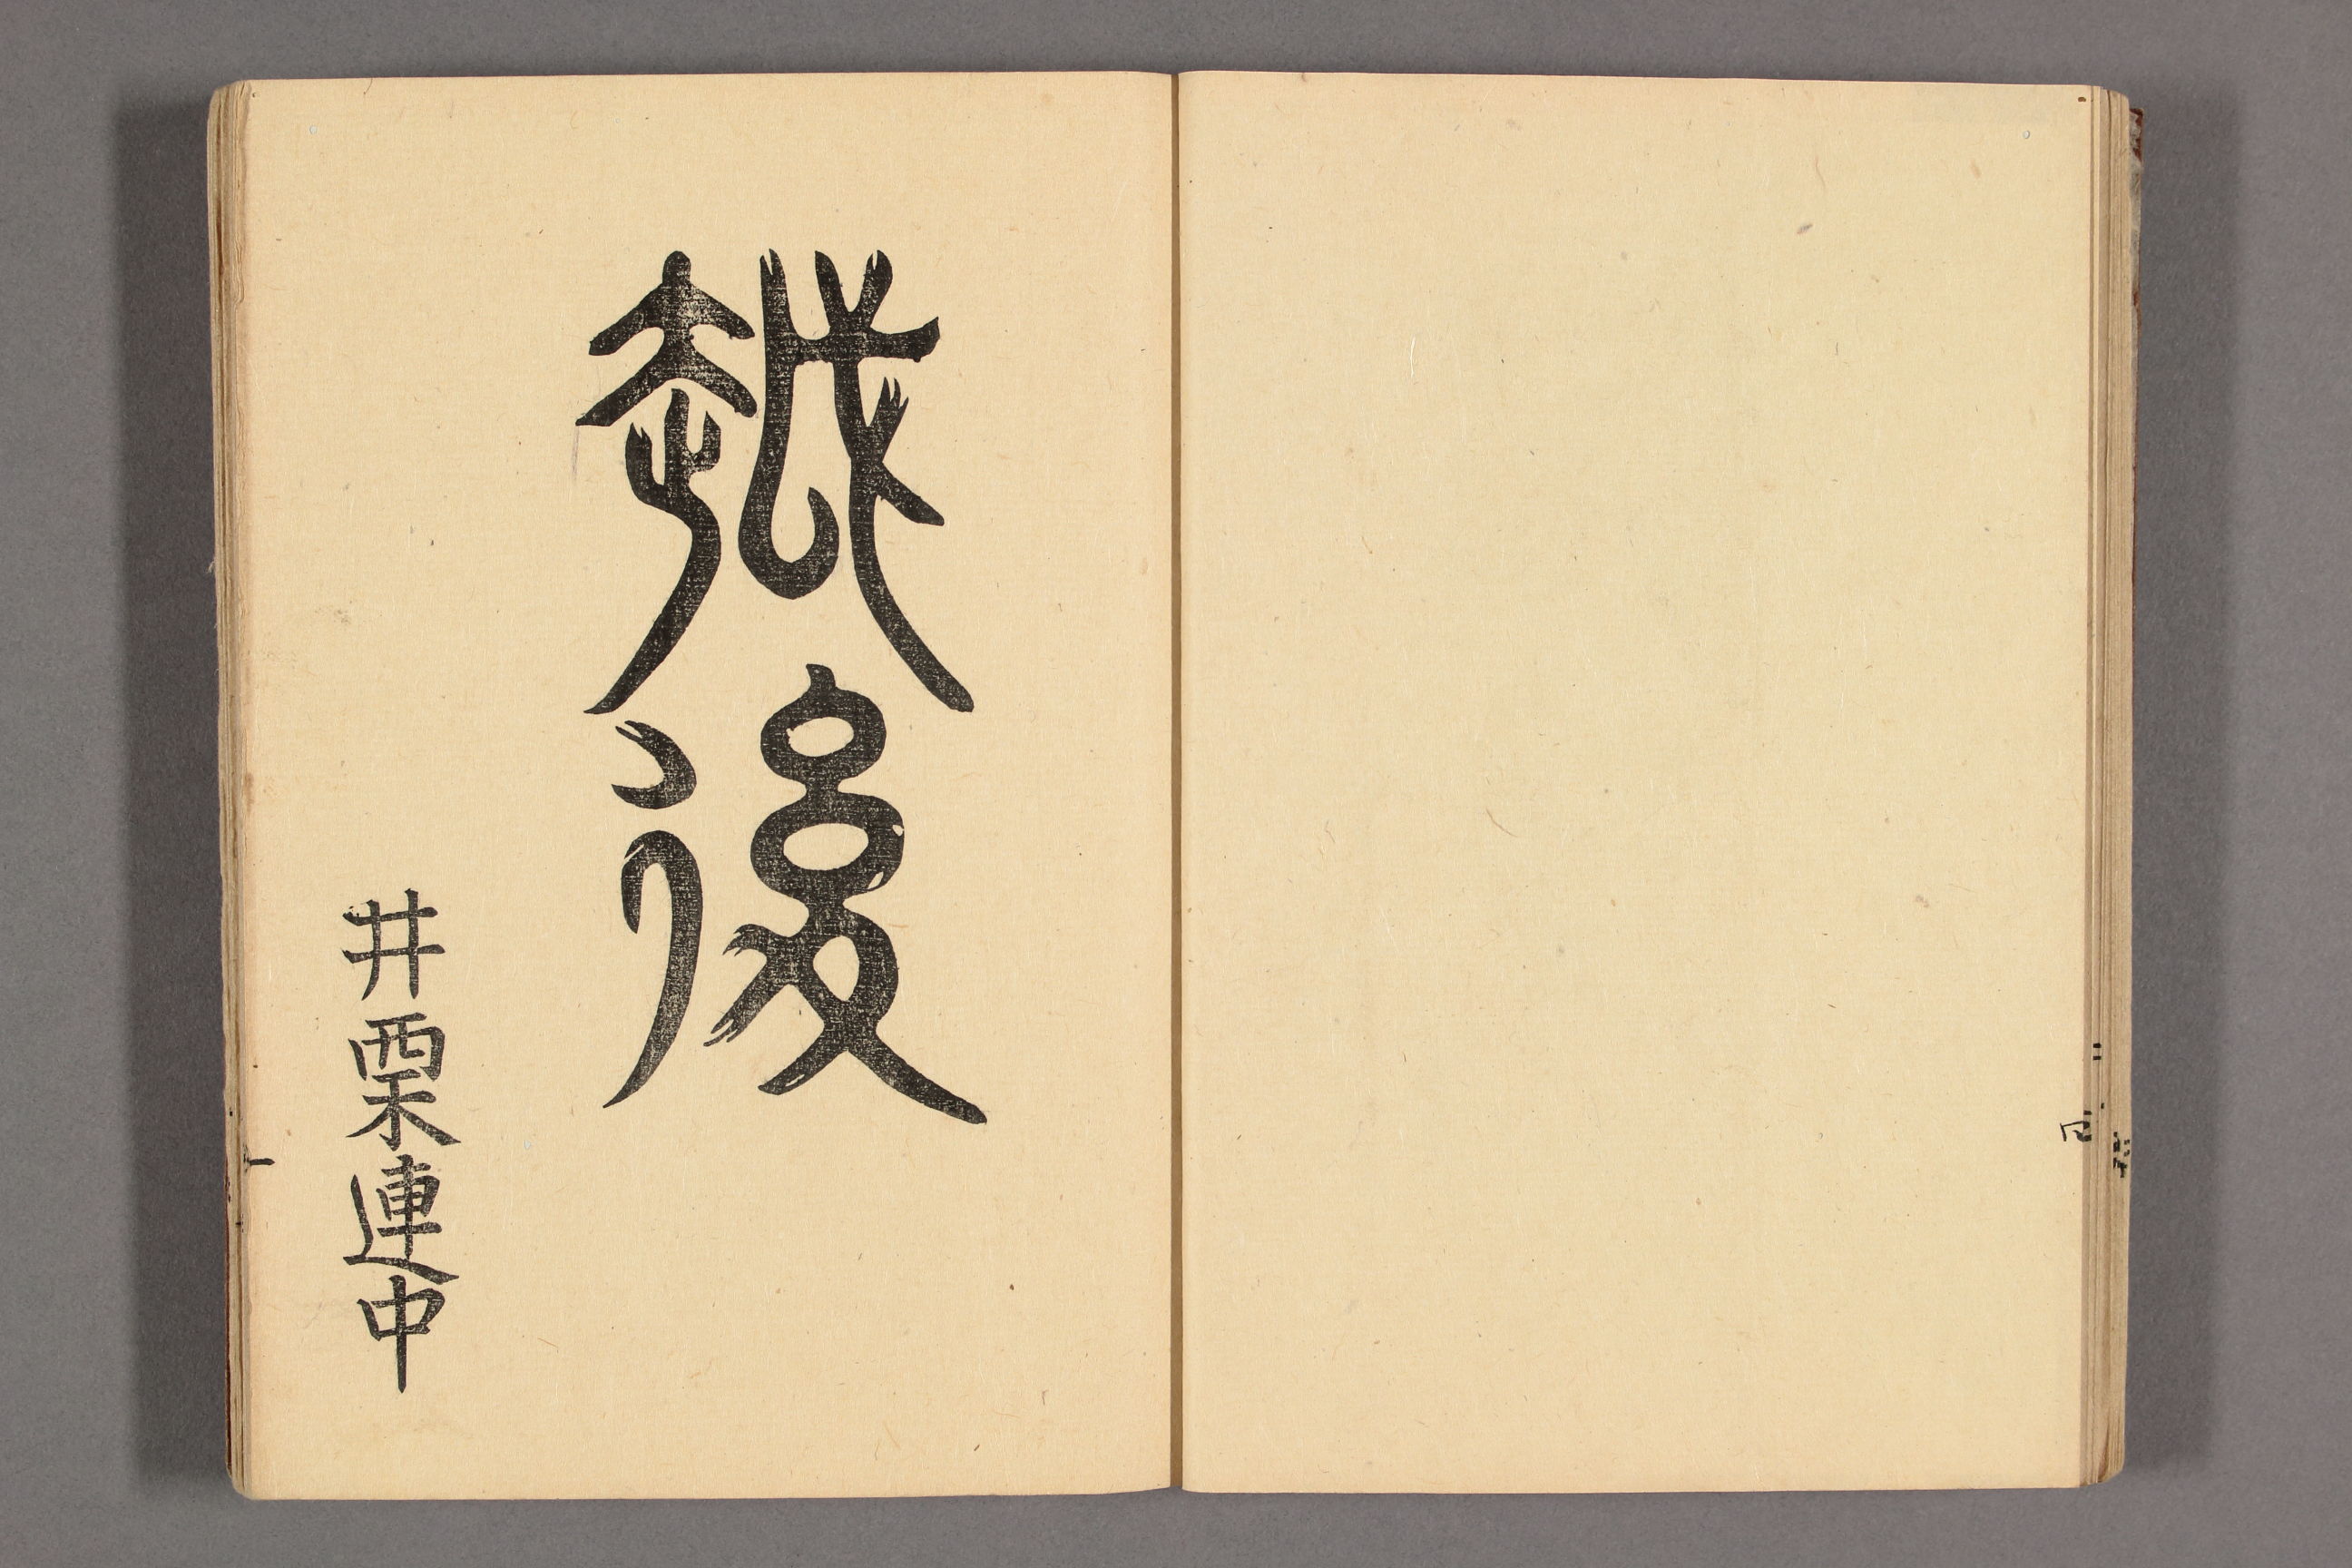 越後
井栗連中